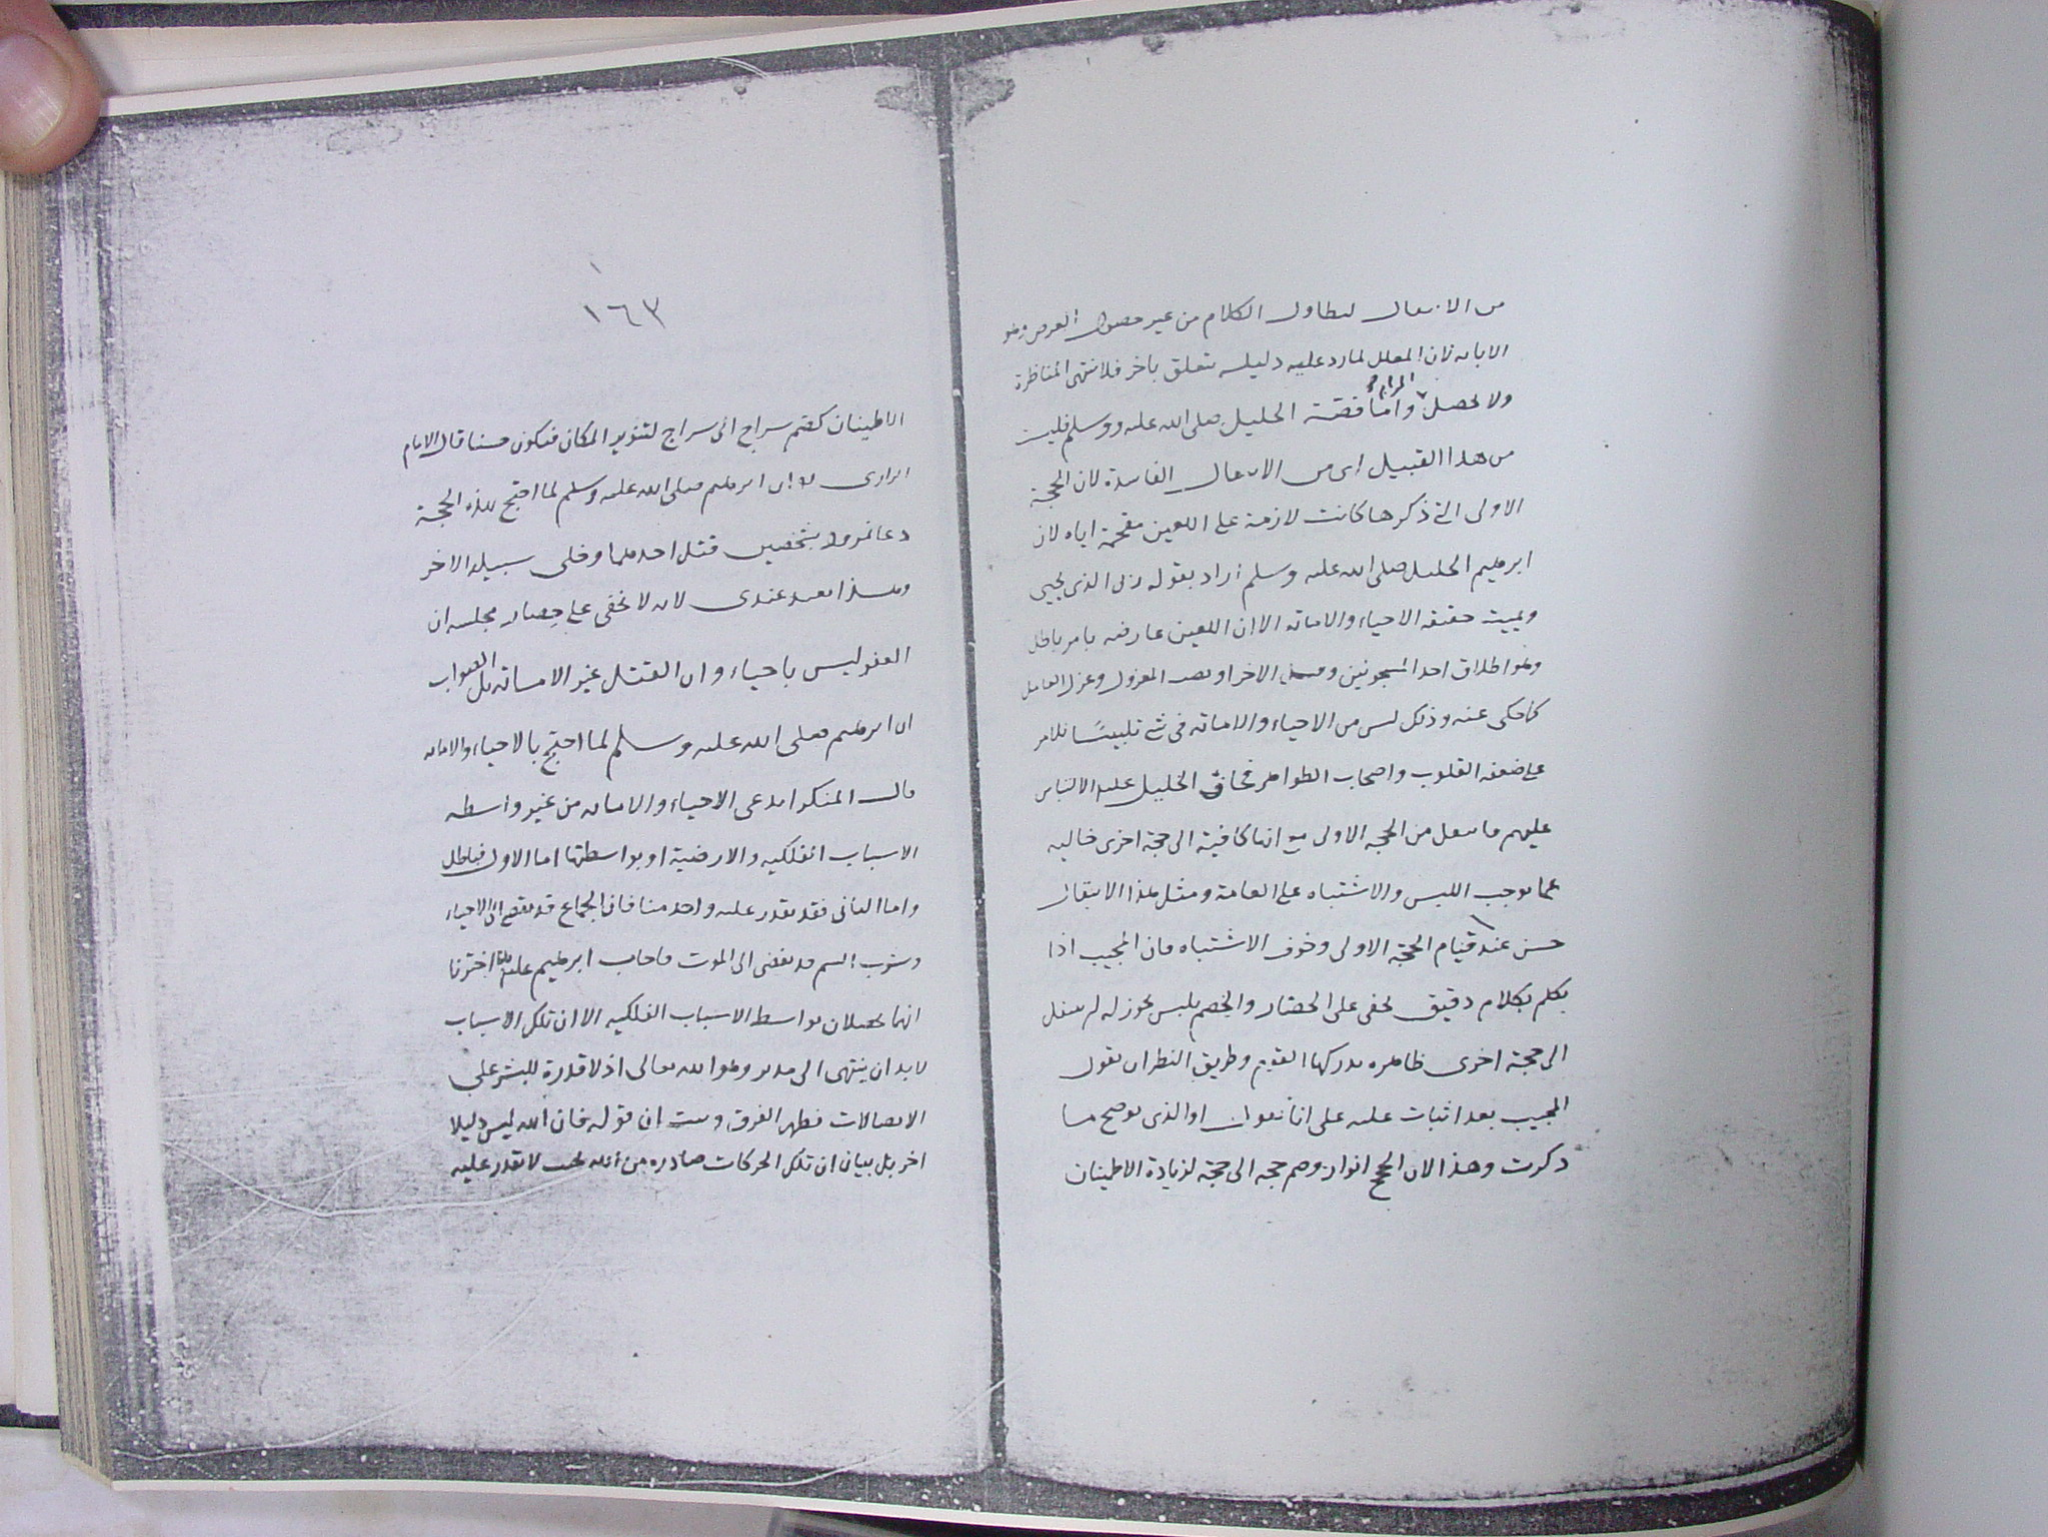 من الانتقال لتطاول الكلام من غير حصول الغرض وهو
الابانة فان المعلل لما رد عليه دليله يتعلق باخر فلا تنتهى المناظرة
ولا يحصل المرام واما قصة الخليل صلى الله عليه وسلم فليست
من هذا القبيل اى من الانتقال الفاسدة لان الحجة
الاولى التى ذكرها كانت لازمة على اللعين مفحمة اياه لان
ابرهيم الخليل صلى الله عليه وسلم اراد بقوله ربى الذى يحيى
ويميت حقيقة الاحياء والاماتة الا ان اللعين عارضه بامر باطل
وهو اطلاق احد المسجونين وقتل الاخر او نصب المعزول وعزل العامل
كما حكى عنه وذلك ليس من الاحياء والاماتة فى شئ تلبيسًا للامر
على ضعفة القلوب واصحاب الظواهر فخاف الخليل عليه الالتباس
عليهم فانتقل من الحجة الاولى مع انها كافية الى حجة اخرى خالية
عما يوجب اللبس والاشتباه على العامة ومثل هذا الانتقال
حسن عند قيام الحجة الاولى وخوف الاشتباه فان المجيب اذا
تكلم بكلام دقيق يخفى على الحضار والخصم يلبس يجوز له ان ينتقل
الى حجة اخرى ظاهرة يدركها القوم وطريق النظر ان يقول
المجيب بعد اثبات علته على انا نقول او الذى يوضح ما
ذكرت وهذا لان الحجج انوار وضم حجة الى حجة لزيادة الاطمينان
١٦٣
الاطمينان كضم سراج الى سراج لتنوير المكان فيكون حسنا قال الامام
الرازى ان ابرهيم صلى الله عليه وسلم لما احتج بهذه الحجة
دعا نمرود بشخصين قتل احدهما وخلى سبيل الاخر
وهذا بعيد عندى لانه لا يخفى على حضار مجلسه ان
العفو ليس باحياء وان القتل غير الاماتة بل الصواب
ان ابرهيم صلى الله عليه وسلم لما احتج بالاحياء والاماتة
قال المنكر اتدعى الاحياء والاماتة من غير واسطة
الاسباب الفلكية والارضية او بواسطتها اما الاول فباطل
واما الثانى فقد يقدر عليه واحد منا فان الجماع قد يفضى الى الاحياء
وشرب السم قد يفضى الى الموت فاجاب ابرهيم عليه اخترنا
انهما يحصلان بواسطة الاسباب الفلكية الا ان تلك الاسباب
لا بد ان ينتهى الى مدبر وهو الله تعالى اذ لا قدرة للبشر على
الاتصالات فظهر الفرق وثبت ان قوله فان الله ليس دليلا
اخر بل بيان ان تلك الحركات صادرة من الله بحيث لا يقدر عليه